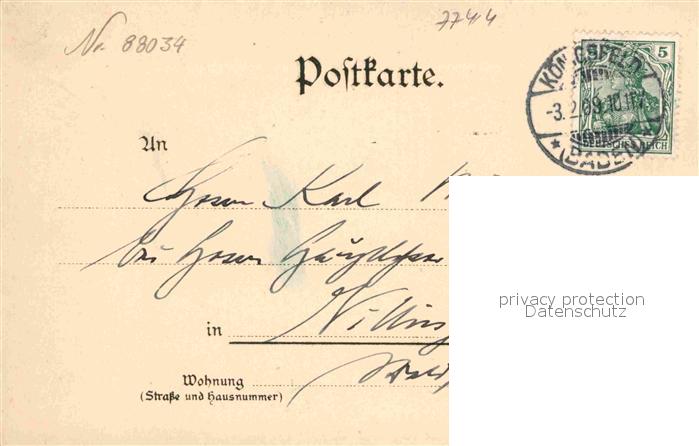 No. 88034
7744
5
KÖNIGSFELD
-3.2.09.10
(BADEN)
DEUTSCHES REICH
Postkarte.
An
Herrn Karl
bei Herrn
in Villing
Wohnung
(Straße und Hausnummer)
privacy protection
Datenschutz